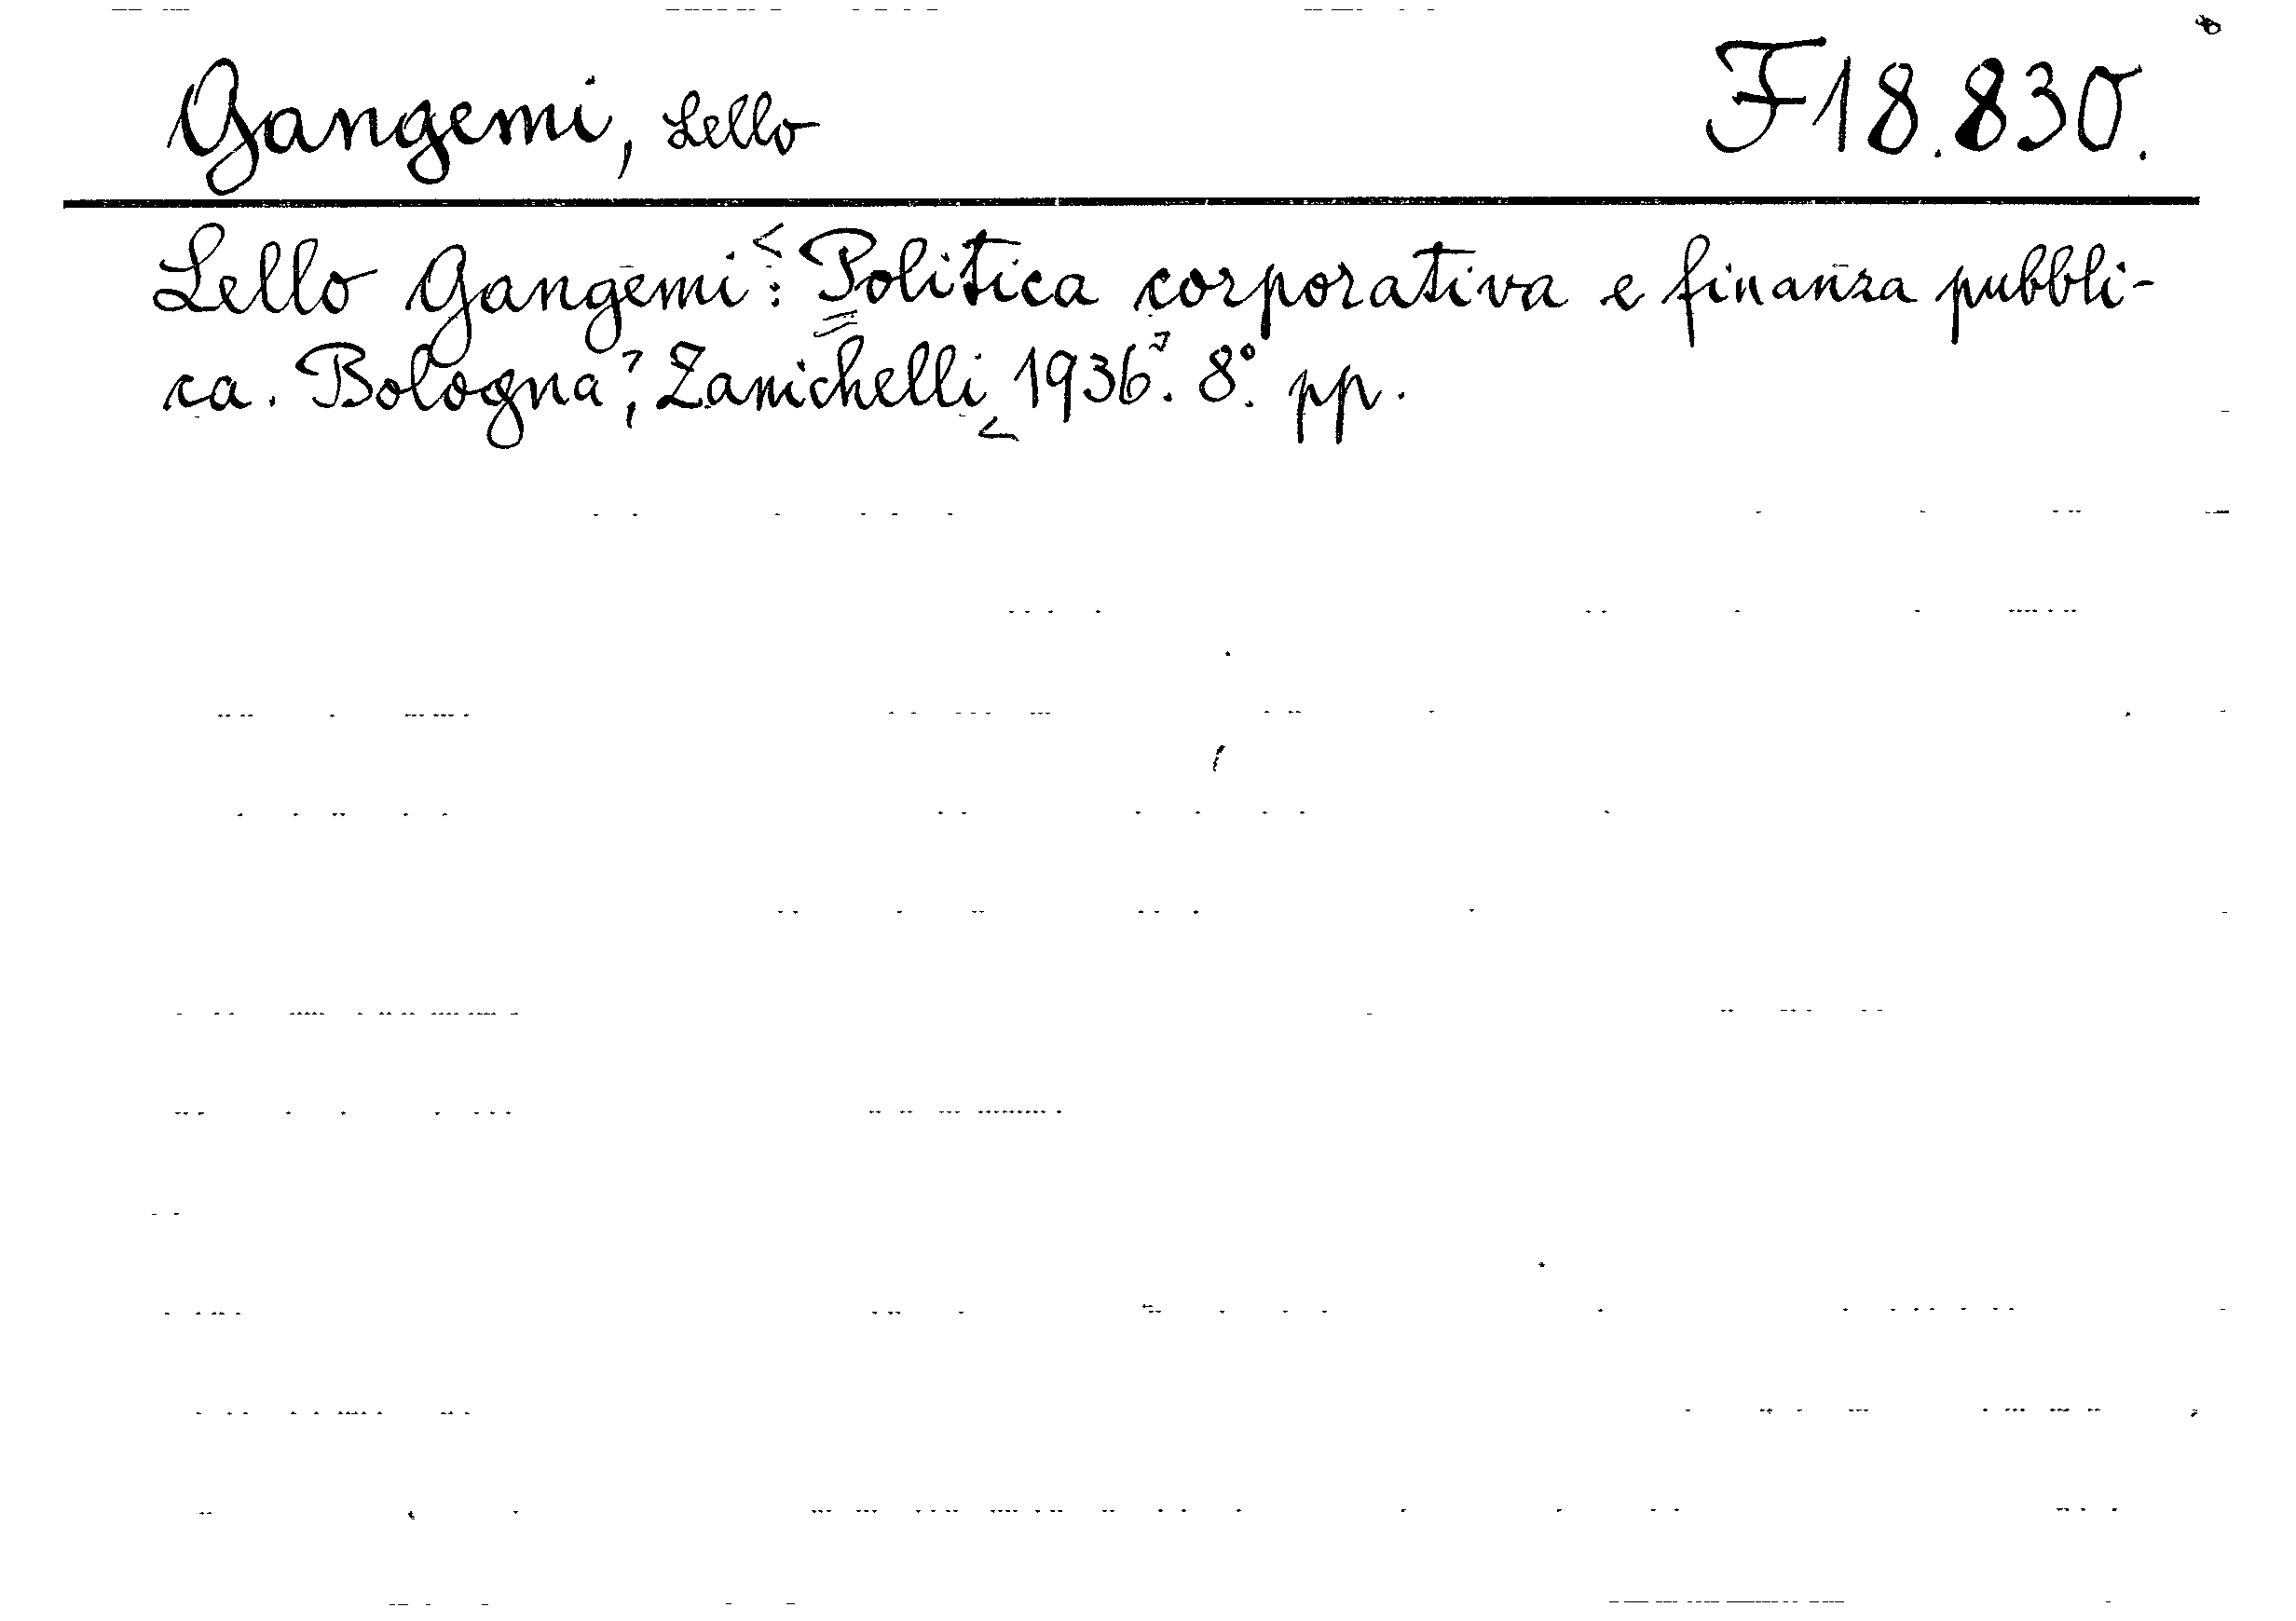 Gangemi, Lello F18.830.
Lello Gangemi: Politica corporativa e finanza pubbli-
ca. Bologna, Zanichelli 1936. 8°. pp.